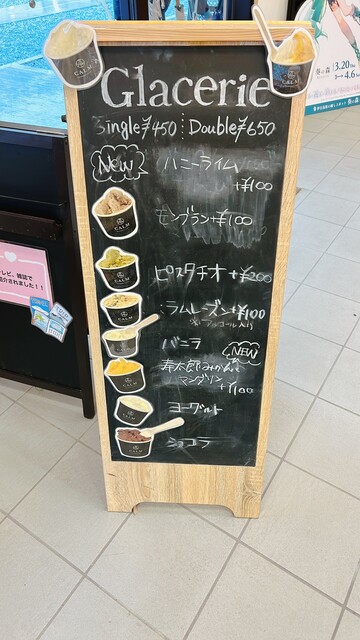 Glacerie
Single ¥450 Double ¥650
New ハニーライム
+¥100
モンブラン+¥100
ピスタチオ +¥200
ラムレーズン+¥100
※アルコール入り
バニラ
NEW
寿太郎みかん&
マンダリン
+¥100
ヨーグルト
ショコラ
CALM
CALM
CALM
CALM
CALM
CALM
CALM
テレビ、雑誌で
紹介されました!!
3.20
4.6